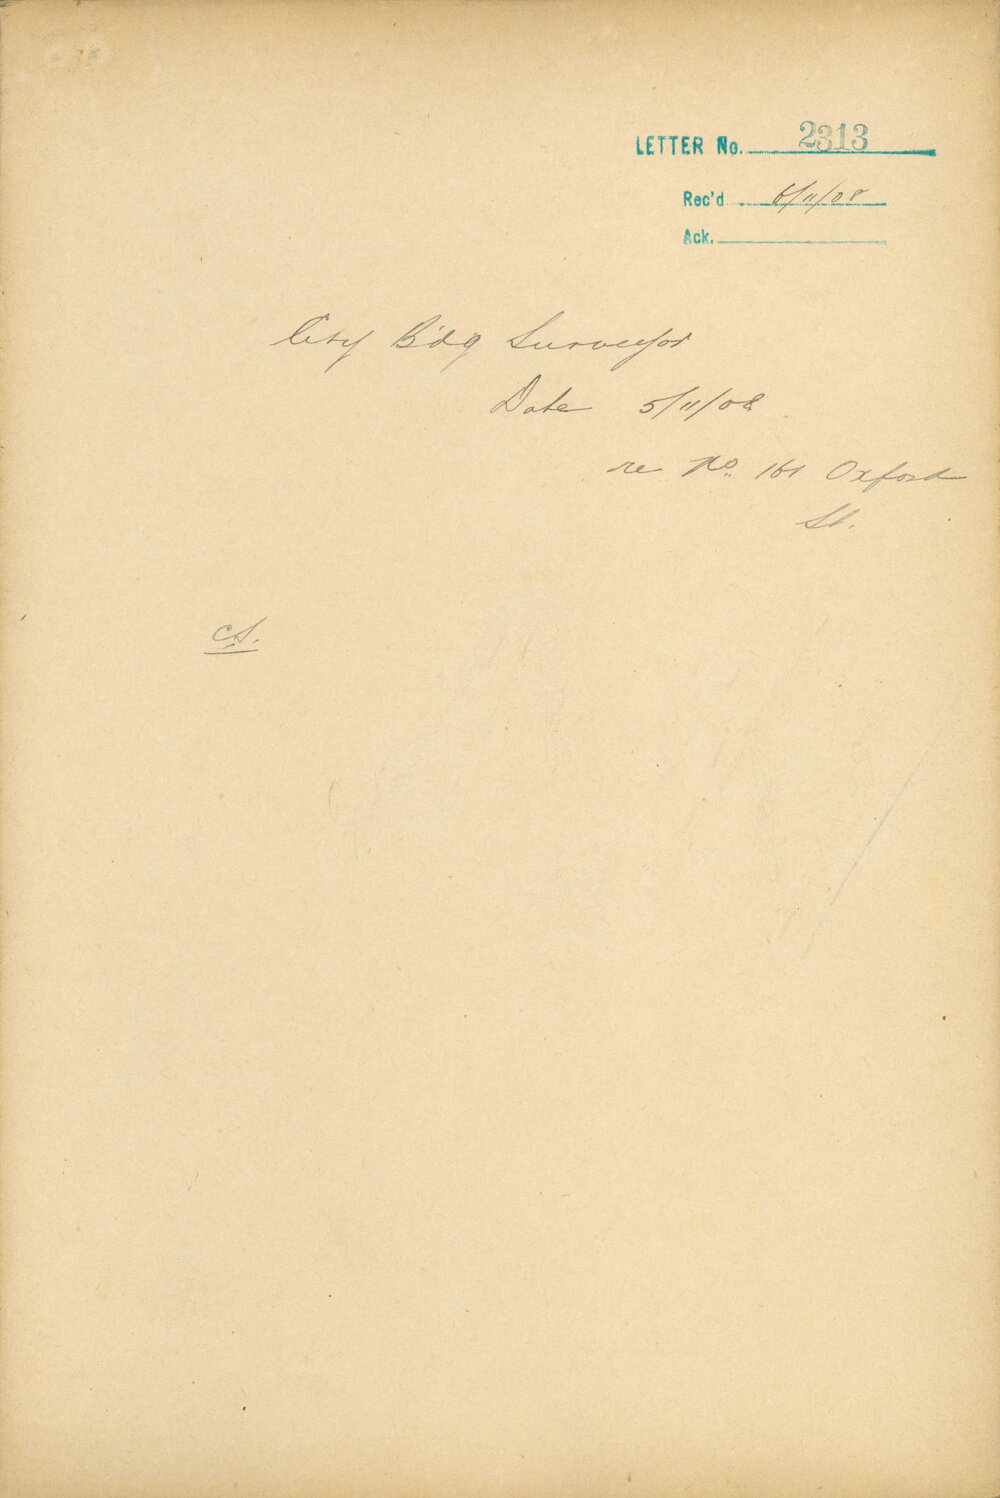 LETTER No. 2313
Rec'd 6/11/08
Ack.
City B'd'g Surveyor
Date 5/11/08
re No. 161 Oxford
St.
CS.